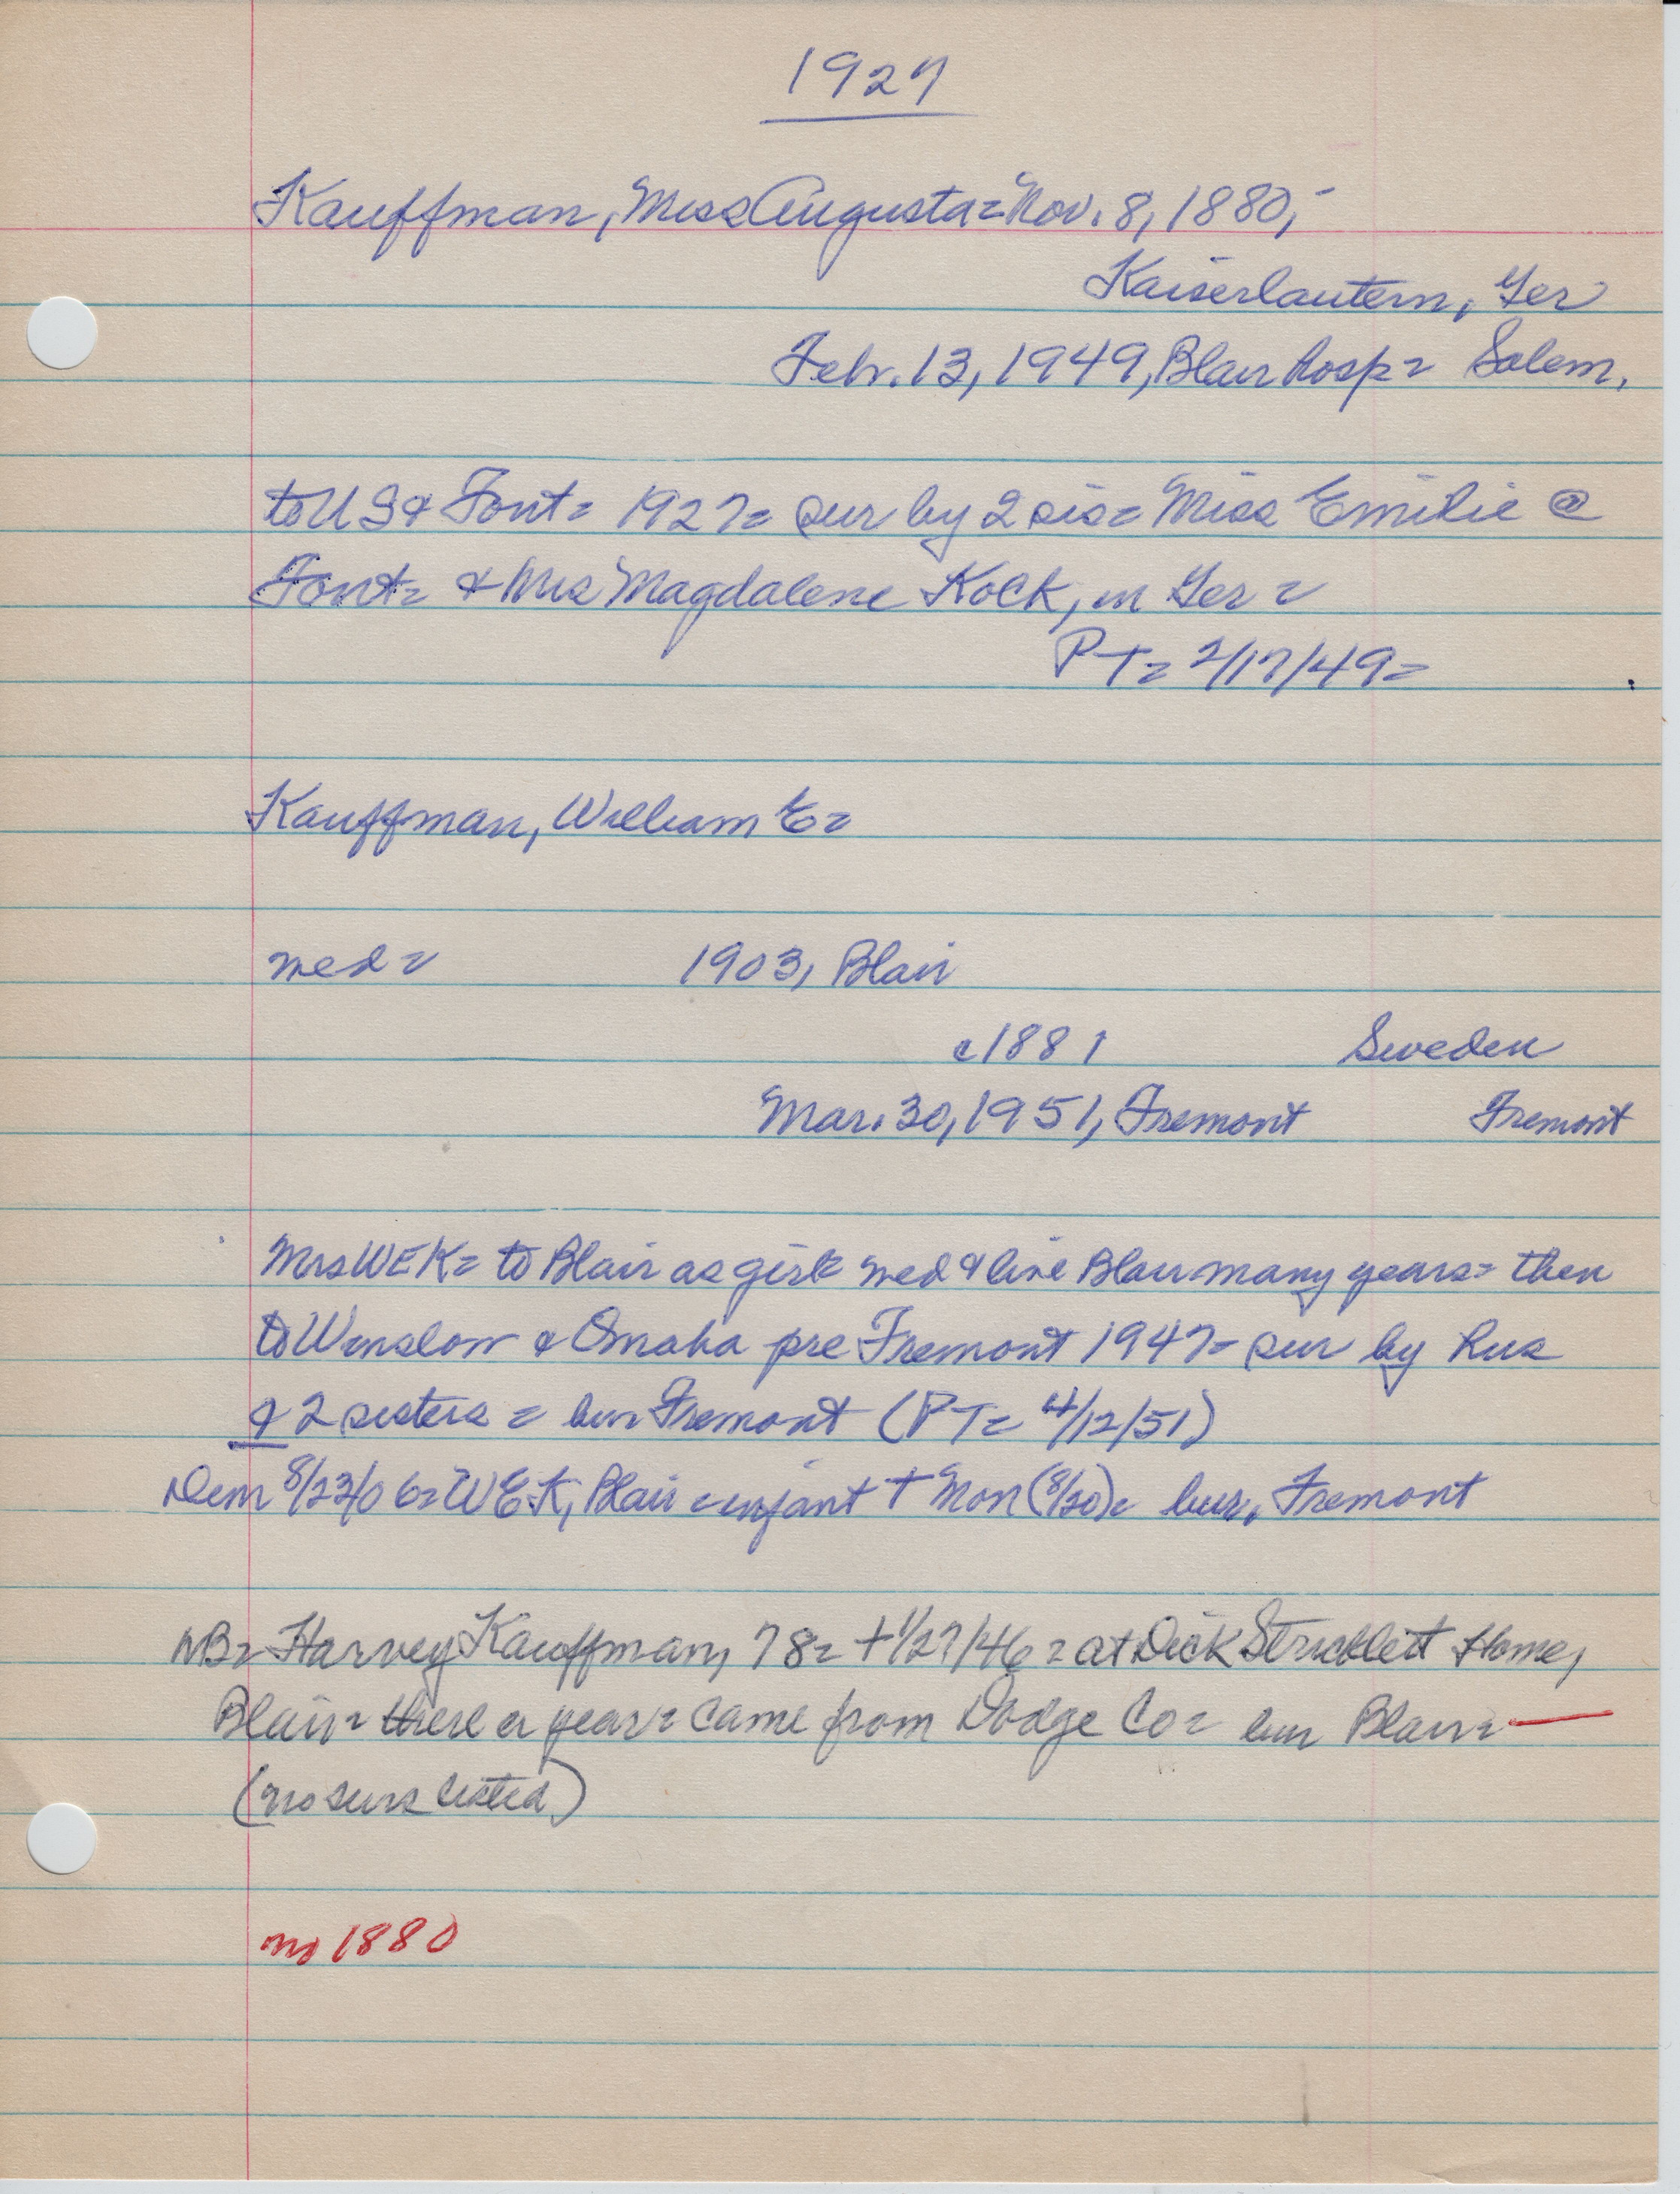 1927
Kauffman, Miss Augusta = Nov. 8, 1880,-
Kaiserlautern, Ger
Feb. 13, 1949, Blair hosp = Salem,
to US & Font = 1927 = sur by 2 sis = Miss Emilie @
Font = & Mrs Magdalene Kolk, in Ger =
PT = 2/17/49 =
Kauffman, William E =
med = 1903, Blair
c1881 Sweden
Mar. 30, 1951, Fremont Fremont
Mrs WEK = to Blair as girl = med & live Blair many years = then
to Winslow & Omaha pre Fremont 1947 = sur by hus
& 2 sisters = bur Fremont (PT = 4/12/51)
Dem 8/23/06 = WEK, Blair = infant + Mon (8/20) = bur, Fremont
NB = Harvey Kauffman, 78 = + 1/27/46 = at Dick Stricklett Home,
Blair = there a year = came from Dodge Co = bur Blair = —
(no surs listed)
no 1880